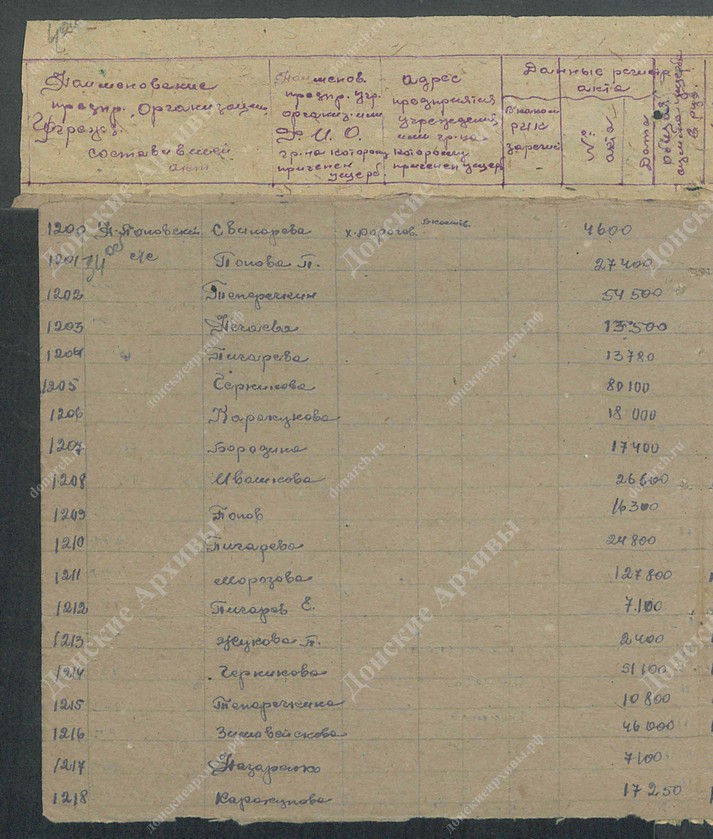 Наименование
предпр. Организации
Учрежд.
составивший
акт
Наименов.
предпр. учр.
организ. или
Ф. И. О.
гр-на которому
причинен
ущерб.
адрес
предприятия
учреждения
или гр-на
которому
причинен ущерб
Данные регистр
акта
В каком
РИК
зарегис
№
акта
Дата
общая
сумма ущерба
в руб.
1200 Н-Поповский Свинарева х. Дорогов 4600
1201 с/с Попова П. 27400
1202 Тапоречкин 54500
1203 Нечаева 13500
1204 Пигарева 13780
1205 Черникова 80100
1206 Каракунова 18000
1207 Бородина 17400
1208 Ивашкова 26600
1209 Попов 16300
1210 Пигарева 24800
1211 Морозова 127800
1212 Пигарев Е. 7100
1213 Жукова П. 2400
1214 Черникова 51100
1215 Тапоречкина 10800
1216 Зимовейскова 46000
1217 Назаренко 7100
1218 Каракунова 17250
Донские Архивы
донскиеархивы.рф
donarch.ru